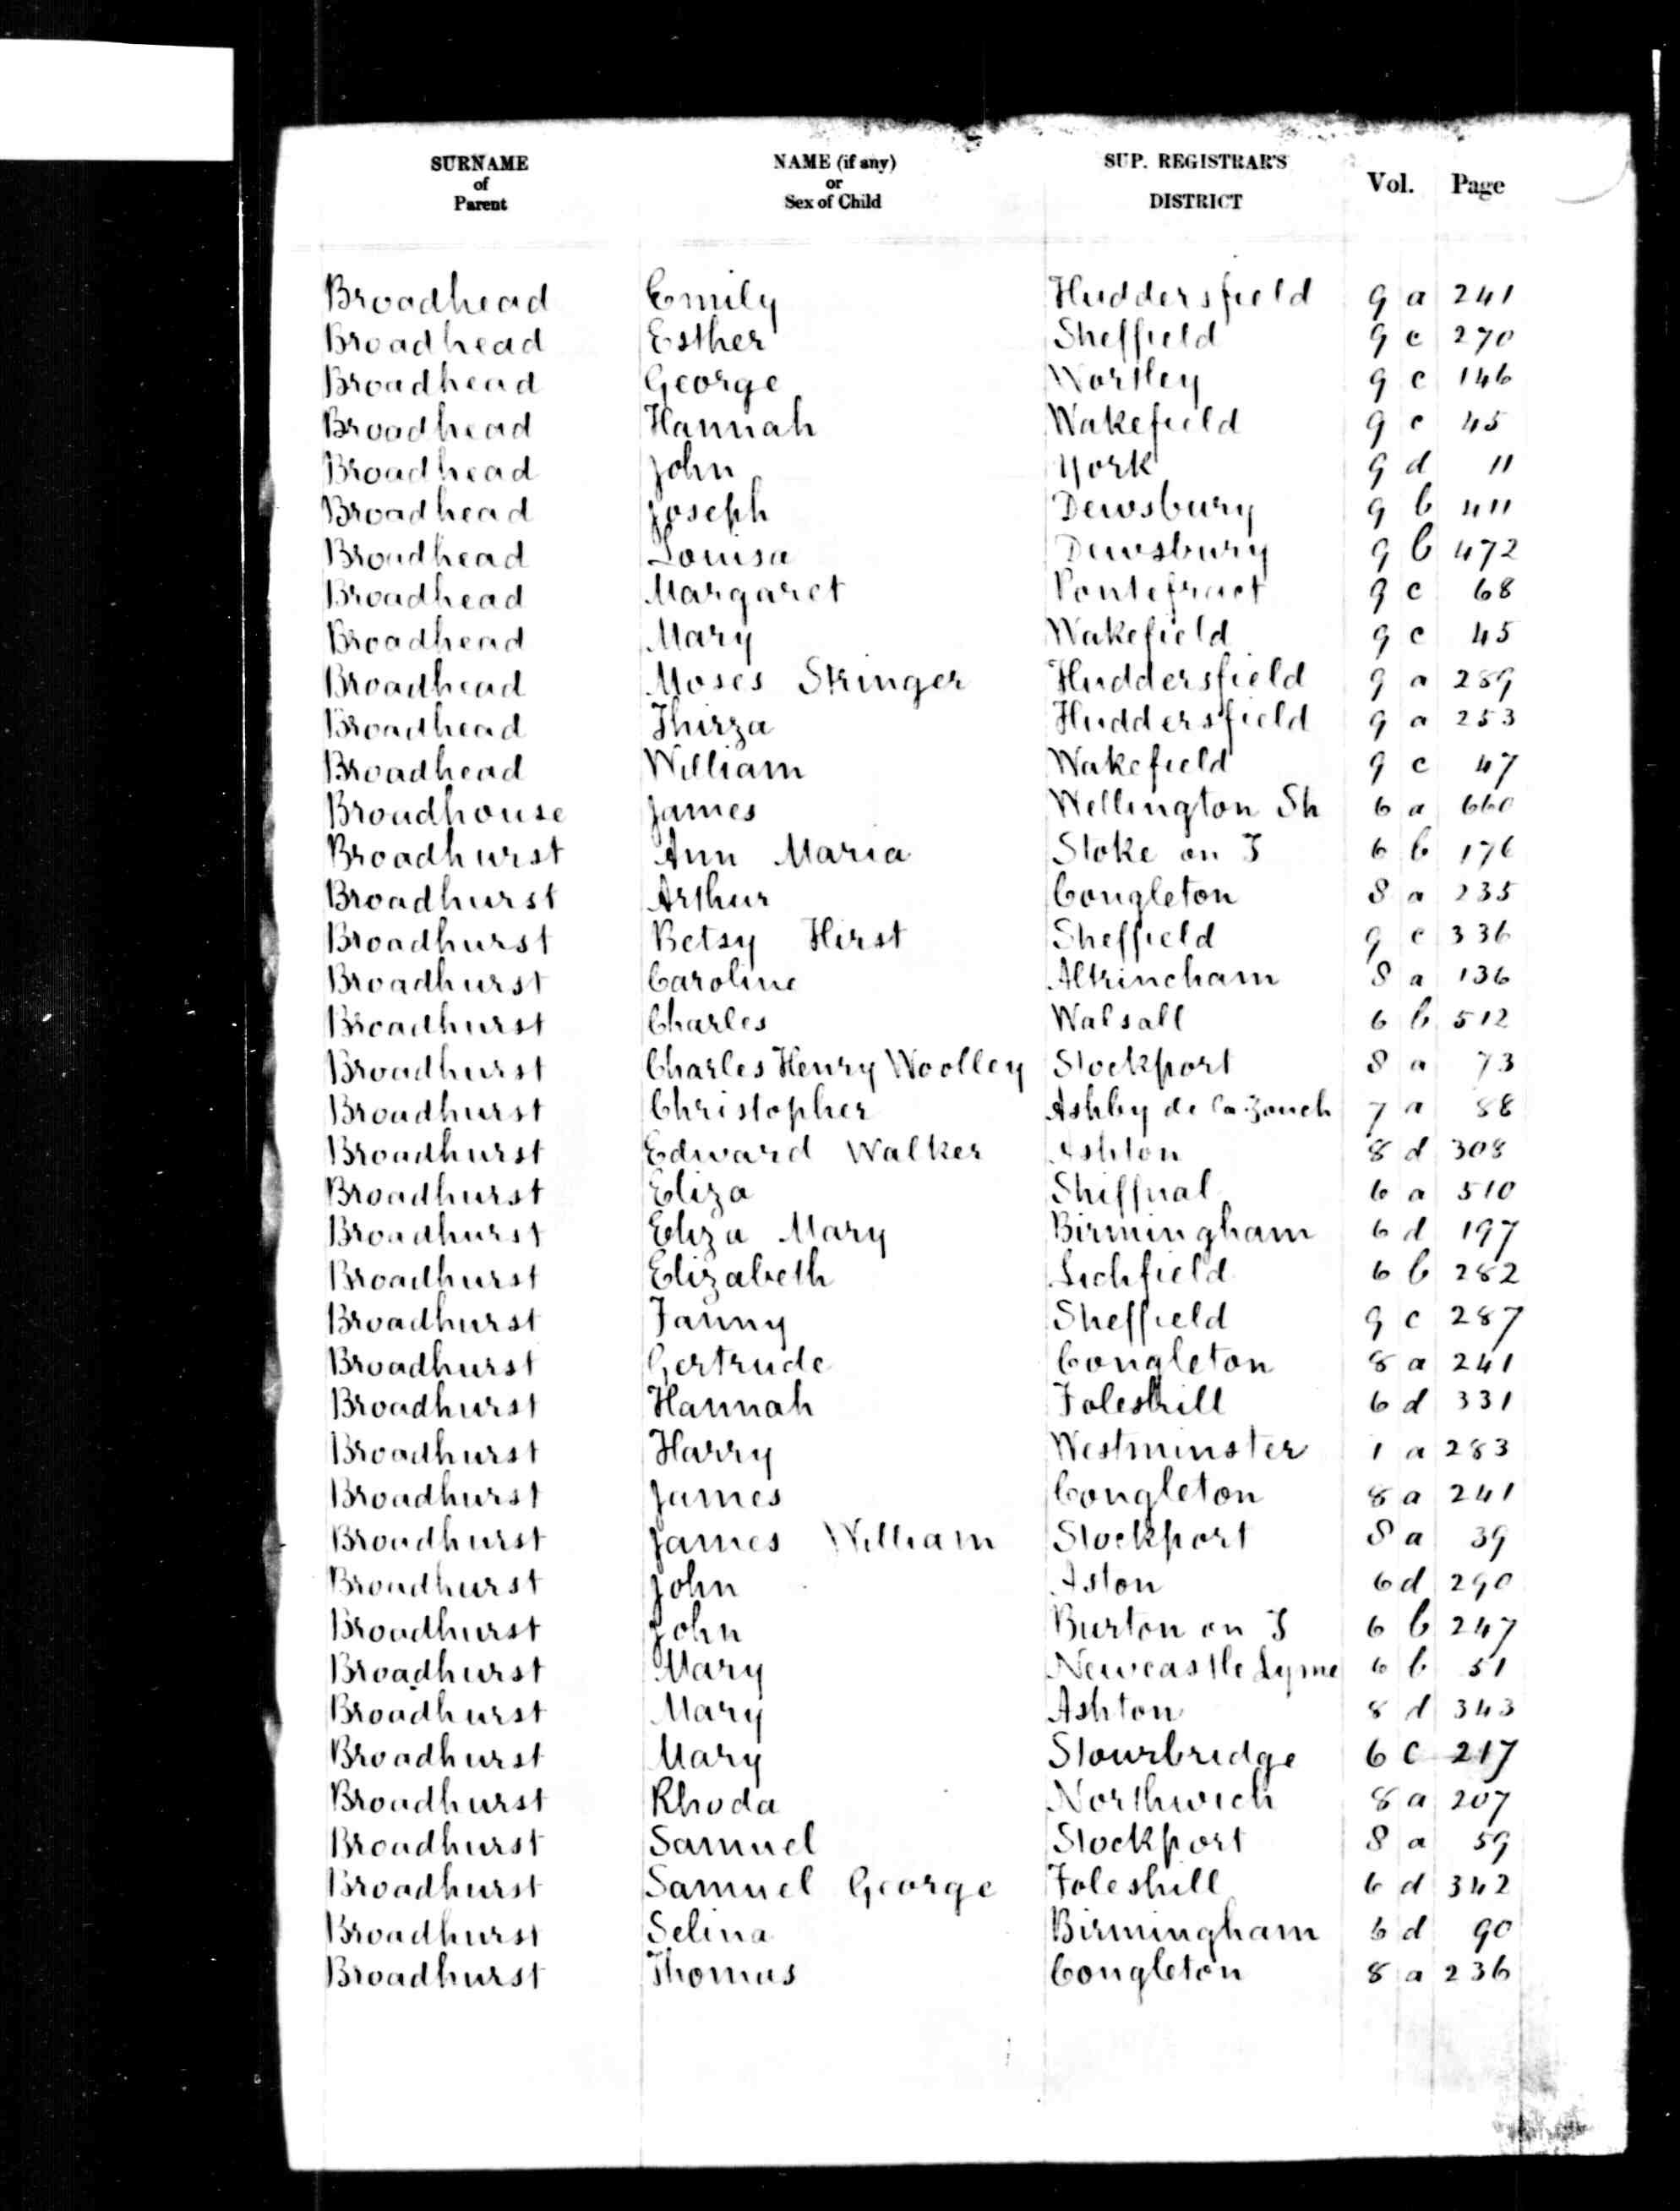 SURNAME of Parent NAME (if any) or Sex of Child SUP. REGISTRAR'S DISTRICT Vol. Page
Broadhead Emily Huddersfield 9 a 241
Broadhead Esther Sheffield 9 c 270
Broadhead George Wortley 9 c 146
Broadhead Hannah Wakefield 9 c 45
Broadhead John York 9 d 11
Broadhead Joseph Dewsbury 9 b 411
Broadhead Louisa Dewsbury 9 b 472
Broadhead Margaret Pontefract 9 c 68
Broadhead Mary Wakefield 9 c 45
Broadhead Moses Stringer Huddersfield 9 a 289
Broadhead Thirza Huddersfield 9 a 253
Broadhead William Wakefield 9 c 47
Broadhouse James Wellington Sh 6 a 660
Broadhurst Ann Maria Stoke on T 6 b 176
Broadhurst Arthur Congleton 8 a 235
Broadhurst Betsy Hirst Sheffield 9 c 336
Broadhurst Caroline Altrincham 8 a 136
Broadhurst Charles Walsall 6 b 512
Broadhurst Charles Henry Woolley Stockport 8 a 73
Broadhurst Christopher Ashby de la Zouch 7 a 88
Broadhurst Edward Walker Ashton 8 d 308
Broadhurst Eliza Shiffnal 6 a 510
Broadhurst Eliza Mary Birmingham 6 d 197
Broadhurst Elizabeth Lichfield 6 b 282
Broadhurst Fanny Sheffield 9 c 287
Broadhurst Gertrude Congleton 8 a 241
Broadhurst Hannah Foleshill 6 d 331
Broadhurst Harry Westminster 1 a 283
Broadhurst James Congleton 8 a 241
Broadhurst James William Stockport 8 a 39
Broadhurst John Aston 6 d 290
Broadhurst John Burton on T 6 b 247
Broadhurst Mary Newcastle Lyme 6 b 51
Broadhurst Mary Ashton 8 d 343
Broadhurst Mary Stourbridge 6 c 217
Broadhurst Rhoda Northwich 8 a 207
Broadhurst Samuel Stockport 8 a 59
Broadhurst Samuel George Foleshill 6 d 342
Broadhurst Selina Birmingham 6 d 90
Broadhurst Thomas Congleton 8 a 236